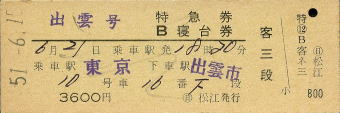 出雲号 特急券
B寝台券
6月21日 乗車駅発 18時20分
乗車駅 東京 下車駅 出雲市
10号車 16番下段
3600円 松江発行
51.-6.1
客三段
小
特⑫B
客ネ三
松江
800